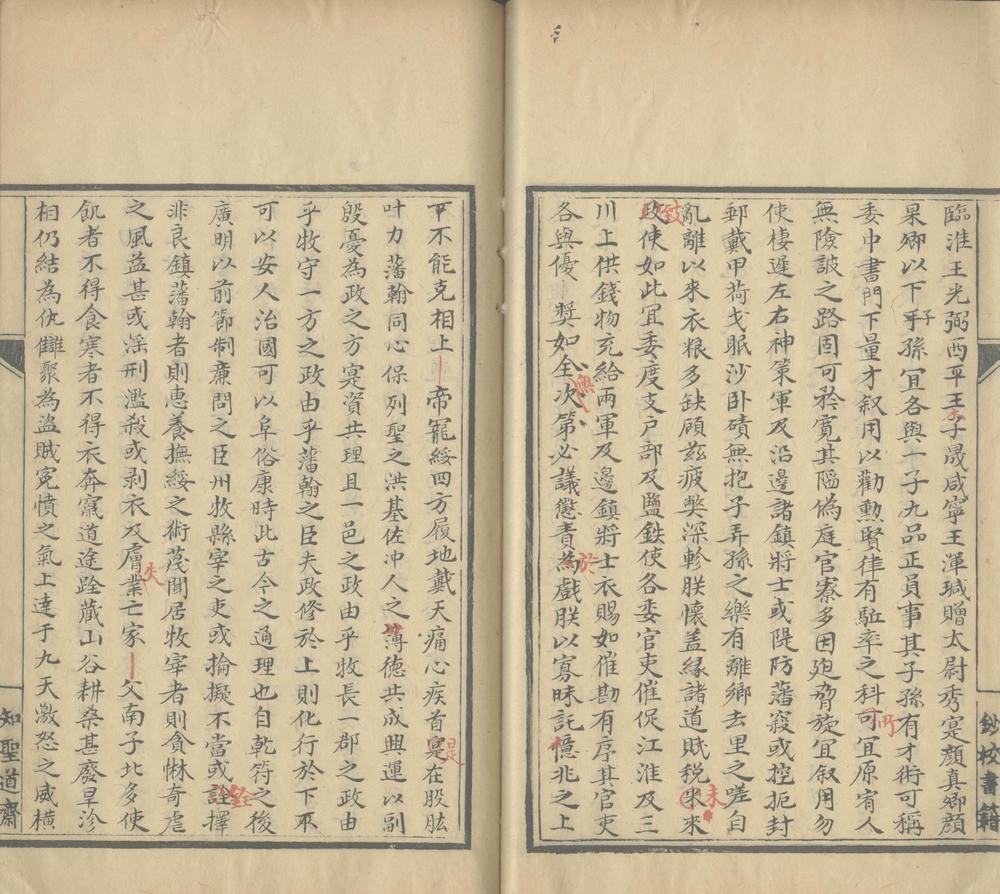 臨淮王光弼西平王子晟咸寧王渾瑊贈太尉秀寔顔真卿顔
杲卿以下子孫宜各與一子九品正員事其子孫有才術可稱
委中書門下量才叙用以勸勲賢律有駈率之科可宜原宥人
無險詖之路固可矜寛其隔偽庭官寮多因廹脅旋宜叙用勿
使棲遲左右神策軍及沿邊諸鎮將士或隄防藩寇或控扼封
郵戴甲荷戈眠沙卧磧無抱子弄孫之樂有離鄉去里之嗟自
亂離以來衣粮多缺顧兹疲獘深軫朕懷盖縁諸道賦税來來未
政致使如此宜委度支戸部及鹽鉄使各委官吏催促江淮及三
川上供錢物充給兩軍及邊鎮將士衣賜如催勘有序其官吏
各與優奬如全無次第必議懲責於戲朕以寡昧託億兆之上
平不能克相上帝寵綏四方履地戴天痛心疾首寔是在股肱
叶力藩翰同心保列聖之洪基佐冲人之薄德共成興運以副
殷憂為政之方寔資共理且一邑之政由乎牧長一郡之政由
乎牧守一方之政由乎藩翰之臣夫政修於上則化行於下
可以安人治國可以阜俗康時此古今之通理也自乾符之後
廣明以前節制廉問之臣州牧縣宰之吏或掄擬不當或詮銓擇
非良鎮藩翰者則惠養撫綏之術蔑聞居牧宰者則貪惏奇虐
之風益甚或滛刑濫殺或剥衣及膚業失亡家父南子北多使
飢者不得食寒者不得衣奔竄道途跧蔵山谷耕桑甚廢旱沴
相仍結為仇讎聚為盗賊寃憤之氣上達于九天激怒之威横
鈔校書籍
知聖道齋